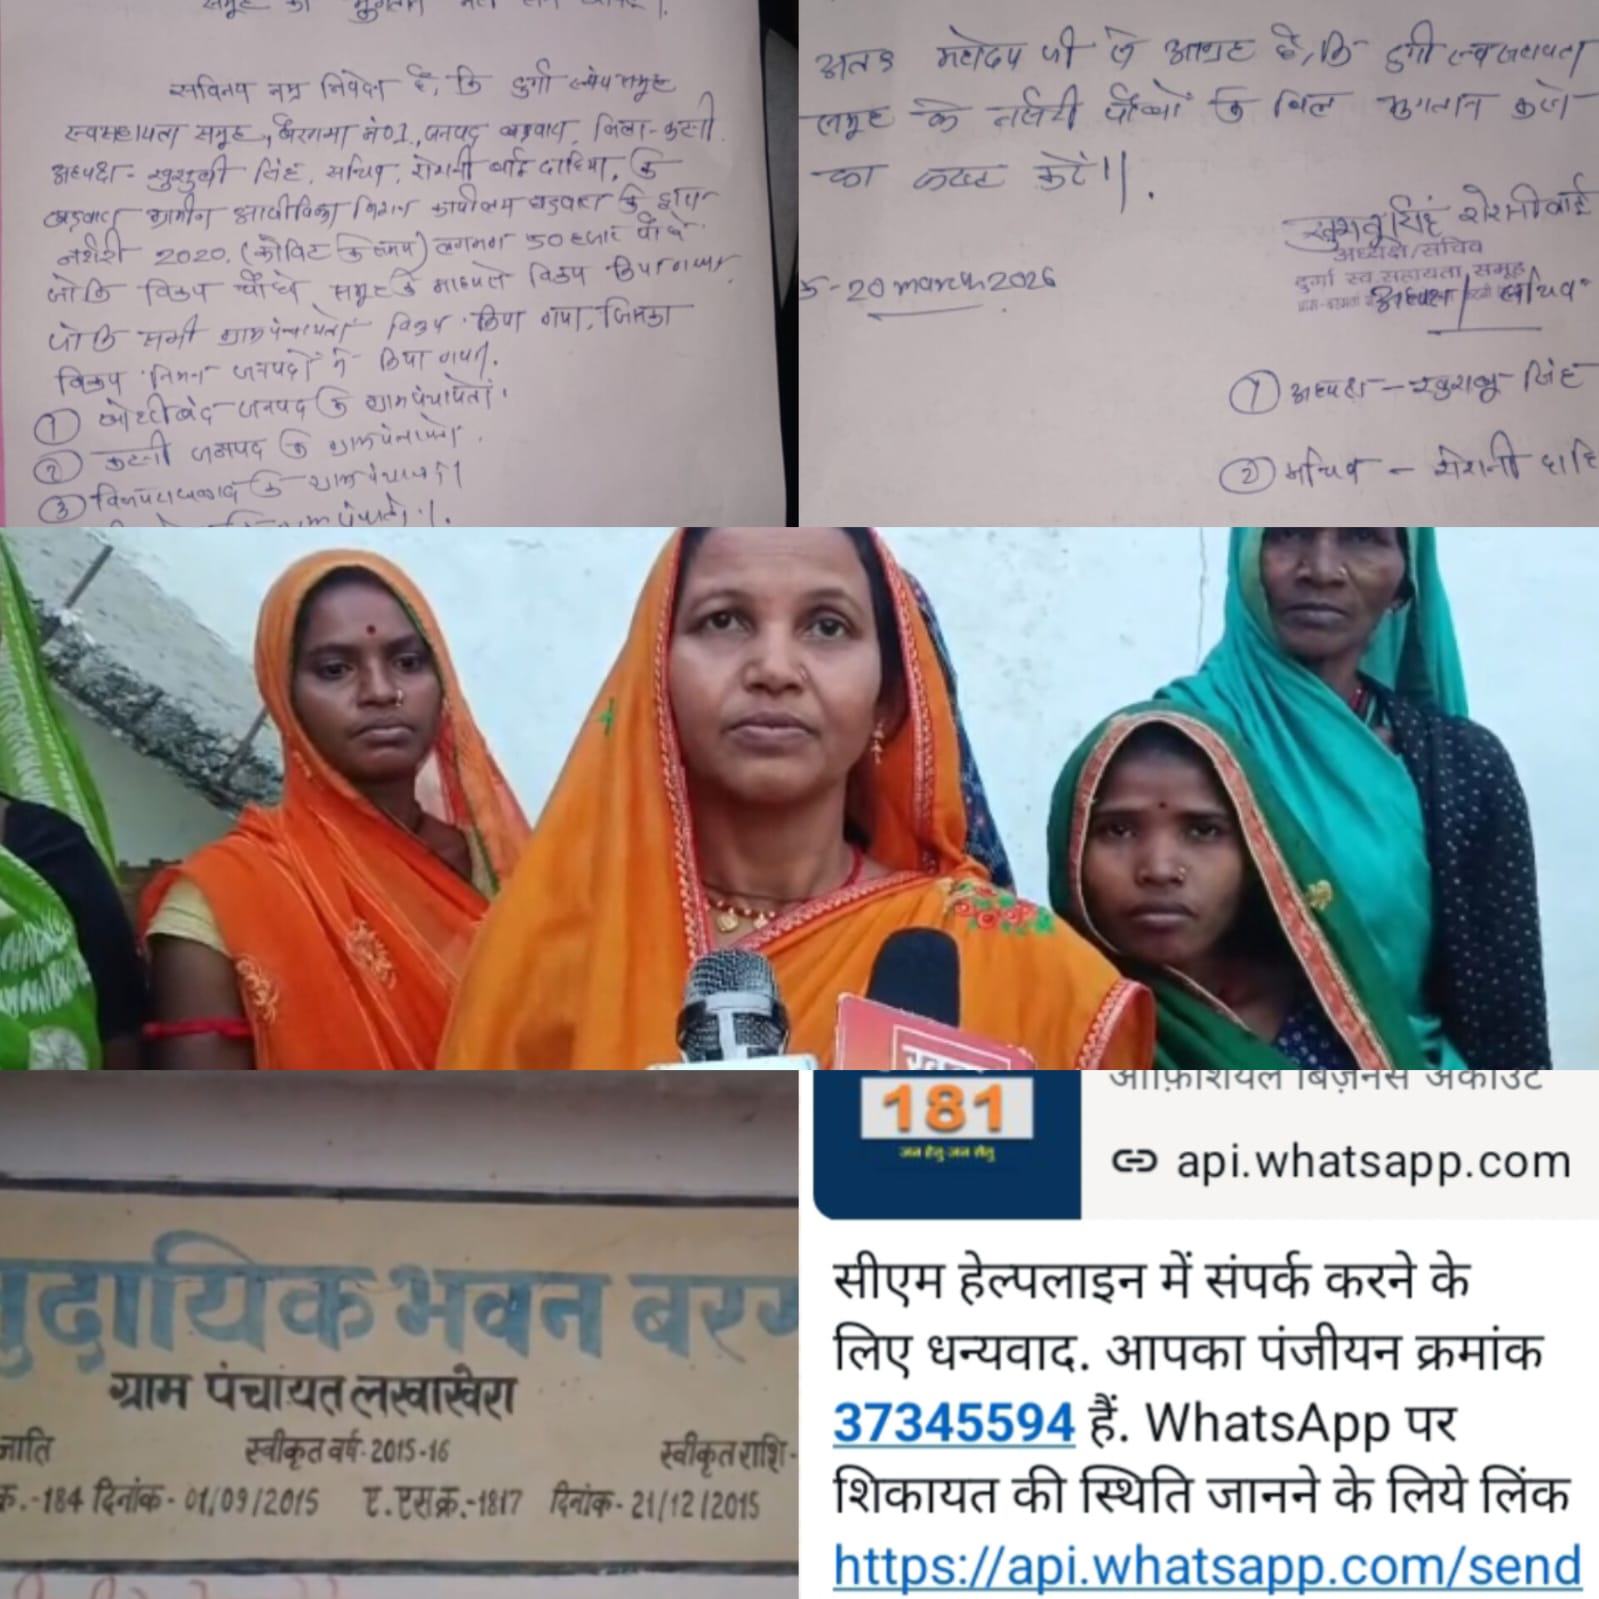 सविनय नम्र निवेदन है, कि दुर्गा
स्वसहायता समूह, बरगमा नं01, जनपद बड़वारा, जिला-कटनी
अध्यक्ष - सिंह, सचिव, रोशनी बाई दाहिया, के
बड़वारा ग्रामीण आजीविका मिशन कार्यालय बड़वारा के द्वारा
नर्सरी 2020, (कोविड के समय) लगभग 50 हजार पौधे
जोकि विक्रय पौधे समूह के माध्यम विक्रय किया गया
जोकि सभी ग्राम पंचायतों विक्रय किया गया, जिसका
विक्रय निम्न जनपदों में किया गया,
① जनपद के ग्राम पंचायतों
② कटनी जनपद के ग्राम पंचायतों
③ के ग्राम पंचायतों
अतः महोदय जी से आग्रह है, कि दुर्गा स्वसहायता
समूह के नर्सरी पौधों के बिल भुगतान करने
का कष्ट करें।।
20 march 2026
खुशबू सिंह रोशनी बाई
अध्यक्ष/सचिव
दुर्गा स्व सहायता समूह
अध्यक्ष / सचिव
① अध्यक्ष - खुशबू सिंह
② सचिव - रोशनी दाहि
मुदायिक भवन बरग
ग्राम पंचायत लखाखेरा
जाति स्वीकृत वर्ष-2015-16 स्वीकृत राशि-
क्र.-184 दिनांक- 01/09/2015 ए.एस.क्र.-1817 दिनांक- 21/12/2015
181
जन हेतु जन सेतु
ऑफ़िशियल बिज़नेस अकाउंट
api.whatsapp.com
सीएम हेल्पलाइन में संपर्क करने के
लिए धन्यवाद. आपका पंजीयन क्रमांक
37345594 हैं. WhatsApp पर
शिकायत की स्थिति जानने के लिये लिंक
https://api.whatsapp.com/send